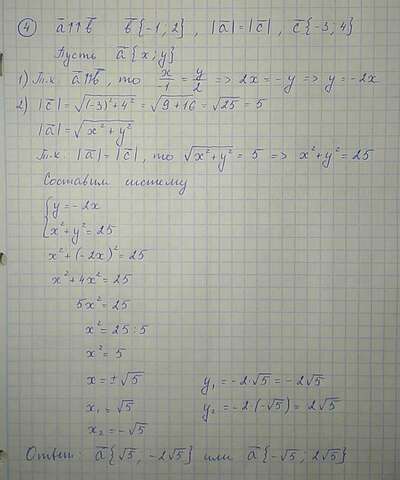 ④ a̅↑↑b̅ b̅{-1; 2}, |a̅|=|c̅|, c̅{-3; 4}
Пусть a̅{x; y}
1) Т.к. a̅↑↑b̅, то x/-1 = y/2 => 2x = -y => y = -2x
2) |c̅| = √((-3)²+4²) = √(9+16) = √25 = 5
|a̅| = √(x²+y²)
Т.к. |a̅|=|c̅|, то √(x²+y²) = 5 => x²+y² = 25
Составим систему
{y = -2x
x²+y² = 25
x²+(-2x)² = 25
x²+4x² = 25
5x² = 25
x² = 25:5
x² = 5
x = ±√5 y₁ = -2·√5 = -2√5
x₁ = √5 y₂ = -2·(-√5) = 2√5
x₂ = -√5
Ответ: a̅{√5, -2√5} или a̅{-√5; 2√5}